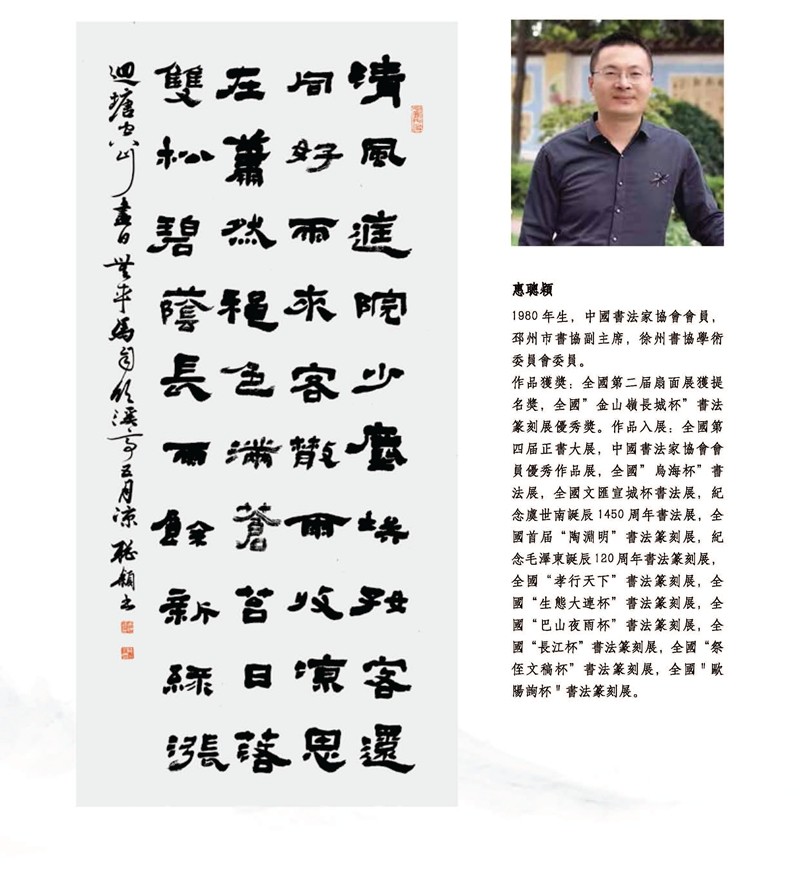 清風庭院少塵埃好客還
同好雨來客散雨收涼思
在蕭然穐色滿蒼苔日落
雙松碧蔭長雨餘新綠漲
迴塘 盡日無車馬 溪亭五月涼 聰穎書
惠聰穎
1980 年生，中國書法家協會會員，
邳州市書協副主席，徐州書協學術
委員會委員。
作品獲獎：全國第二届扇面展獲提
名獎，全國”金山嶺長城杯”書法
篆刻展優秀獎。作品入展：全國第
四届正書大展，中國書法家協會會
員優秀作品展，全國”烏海杯”書
法展，全國文匯宣城杯書法展，紀
念虞世南誕辰 1450 周年書法展，全
國首届“陶淵明”書法篆刻展，紀
念毛澤東誕辰 120 周年書法篆刻展，
全國“孝行天下”書法篆刻展，全
國“生態大連杯”書法篆刻展，全
國“巴山夜雨杯”書法篆刻展，全
國“長江杯”書法篆刻展，全國“祭
侄文稿杯”書法篆刻展，全國＂歐
陽詢杯＂書法篆刻展。